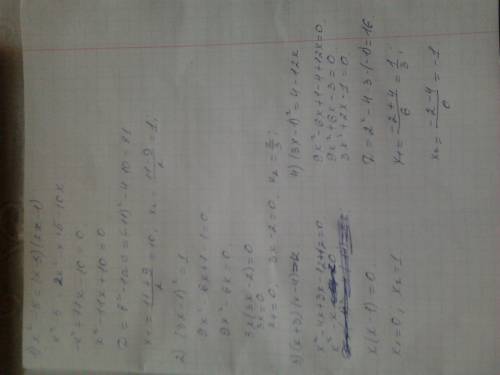 1) x² - 5 = (x-5)(2x-1)
x² - 5 = 2x² - x
-x² + 11x - 10 = 0
x² - 11x + 10 = 0
x₁ = (11+9)/2 = 10, x₂ = (11-9)/2 = 1,
2) (3x-1)² = 1
9x² - 6x + 1 - 1 = 0
9x² - 6x = 0
3x(3x-2) = 0
3x = 0
x₁ = 0, 3x - 2 = 0, x₂ = 2/3;
3) (x+3)(x-4) =
x² - 4x + 3x - 12 + 12 = 0
x² - x
x(x-1) = 0
x₁ = 0, x₂ = 1
4) (3x-1)² = 4 - 12x
9x² - 6x + 1 - 4 + 12x = 0
9x² + 6x - 3 = 0
3x² + 2x - 1 = 0
D = 2² - 4·3·(-1) = 16
x₁ = (-2+4)/6 = 1/3;
x₂ = (-2-4)/6 = -1